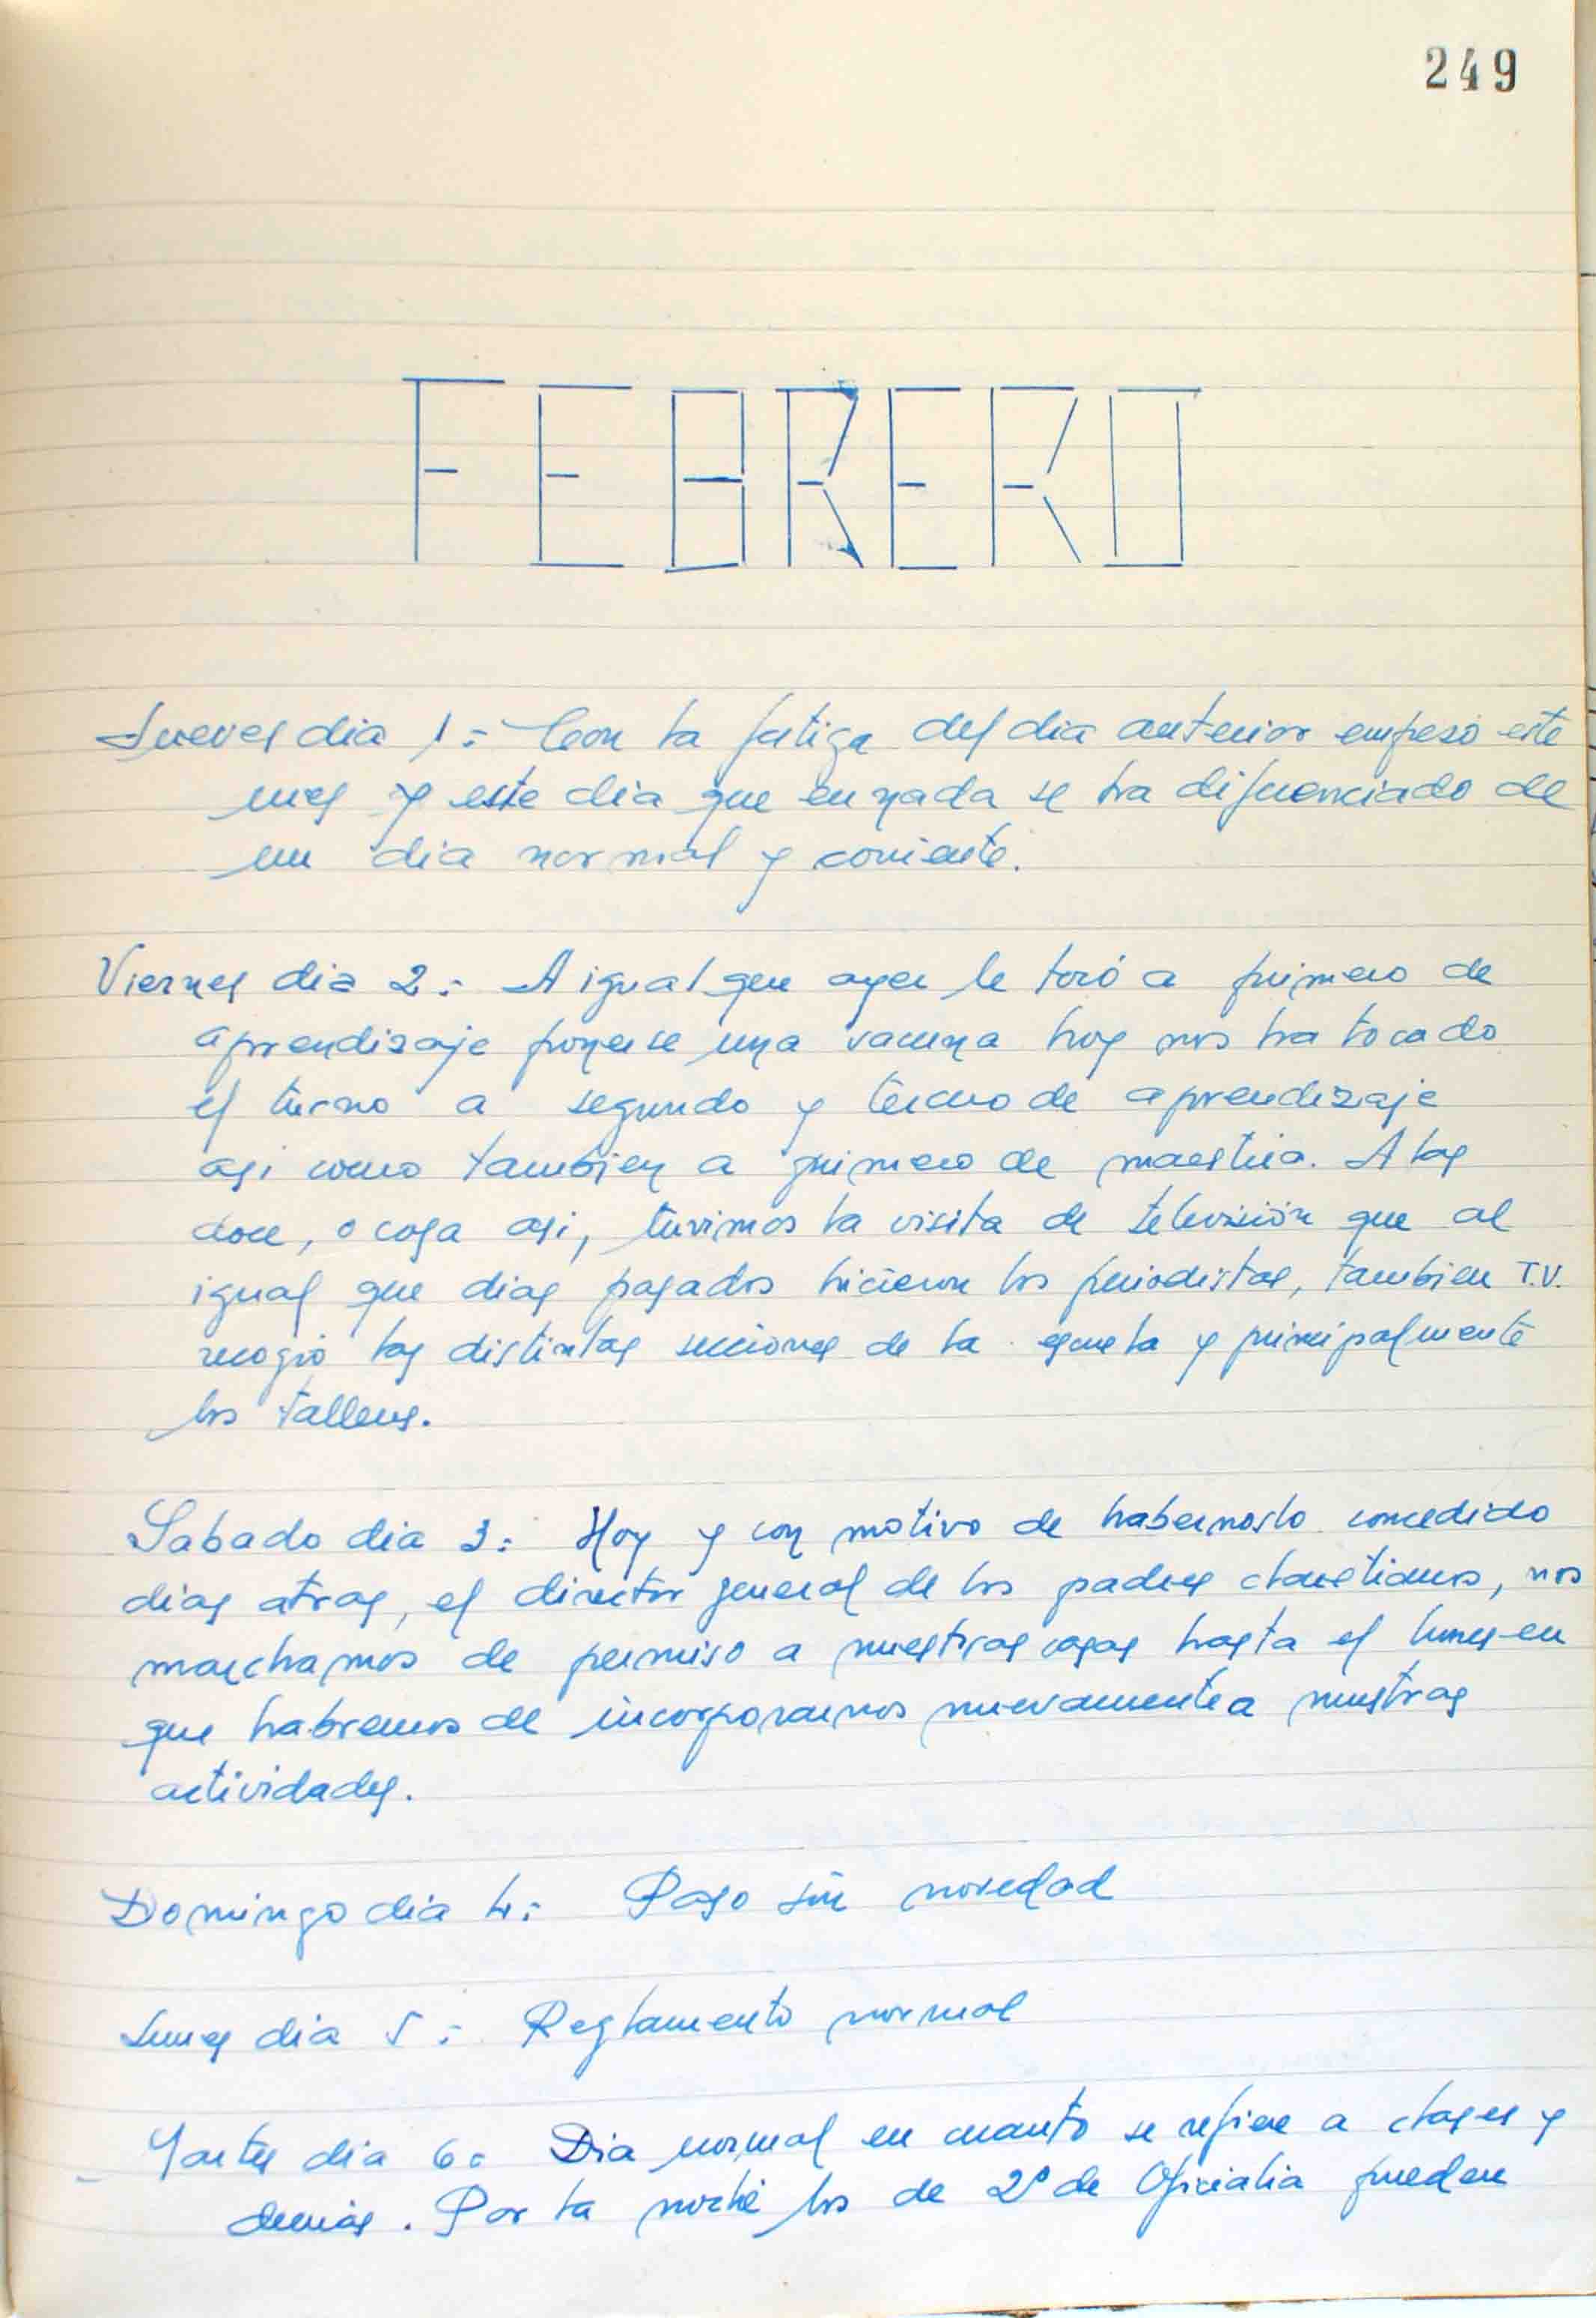 249
FEBRERO
Jueves dia 1:- Con la fatiga del dia anterior empesó este
mes y este dia que en nada se ha diferenciado de
un dia normal y corriente.
Viernes dia 2:- A igual que ayer le tocó a primero de
aprendizaje ponerse una vacuna hoy nos ha tocado
el turno a segundo y tercero de aprendizaje
asi como tambien a primero de maestria. A las
doce, o cosa asi, tuvimos la visita de televisión que al
igual que dias pasados hicieron los periodistas, tambien T.V.
recogió las distintas secciones de la escuela y principalmente
los talleres.
Sabado dia 3:- Hoy y con motivo de habernoslo concedido
dias atras, el director general de los padres claretianos, nos
marchamos de permiso a nuestras casas hasta el lunes en
que habremos de incorporarnos nuevamente a nuestras
actividades.
Domingo dia 4:- Paso sin novedad
Lunes dia 5:- Reglamento normal
Martes dia 6:- Dia normal en cuanto se refiere a clases y
demás. Por la noche los de 2º de Oficialia pueden